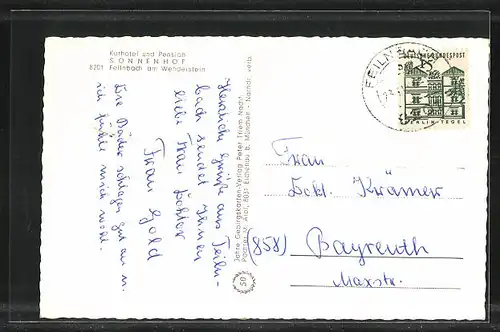 Kurhotel und Pension
SONNENHOF
8201 Feilnbach am Wendelstein
Herzliche Grüße aus Feiln-
bach sendet Ihnen
liebe Frau Doktor
Frau Gold
Die Bäder schlagen gut an u.
ich fühle mich wohl.
Jahre Georgskarten-Verlag Peter Triem Nachf.
8031 Eichenau b. München - Nachdr. verb.
50
FEILN
DEUTSCHE BUNDESPOST
15
BERLIN-TEGEL
Frau
Dokt. Krämer
(858) Bayreuth
Maxstr.